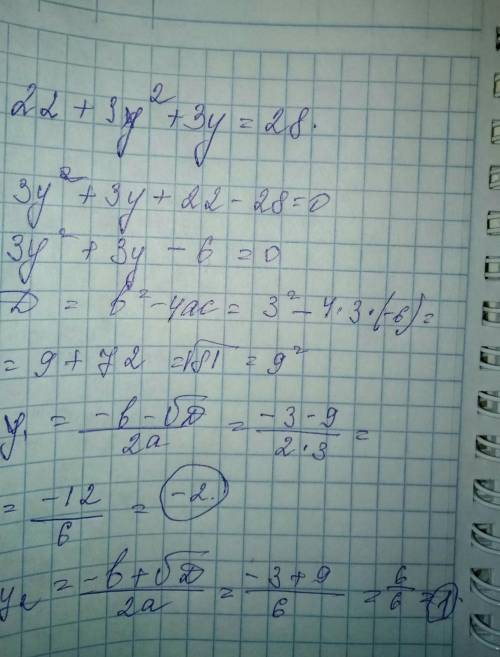 22 + 3y² + 3y = 28.
3y² + 3y + 22 - 28 = 0
3y² + 3y - 6 = 0
D = b² - 4ac = 3² - 4·3·(-6) =
= 9 + 72 = √81 = 9²
y₁ = (-b - √D)/(2a) = (-3 - 9)/(2·3) =
= -12/6 = -2.
y₂ = (-b + √D)/(2a) = (-3 + 9)/6 = 6/6 = 1.